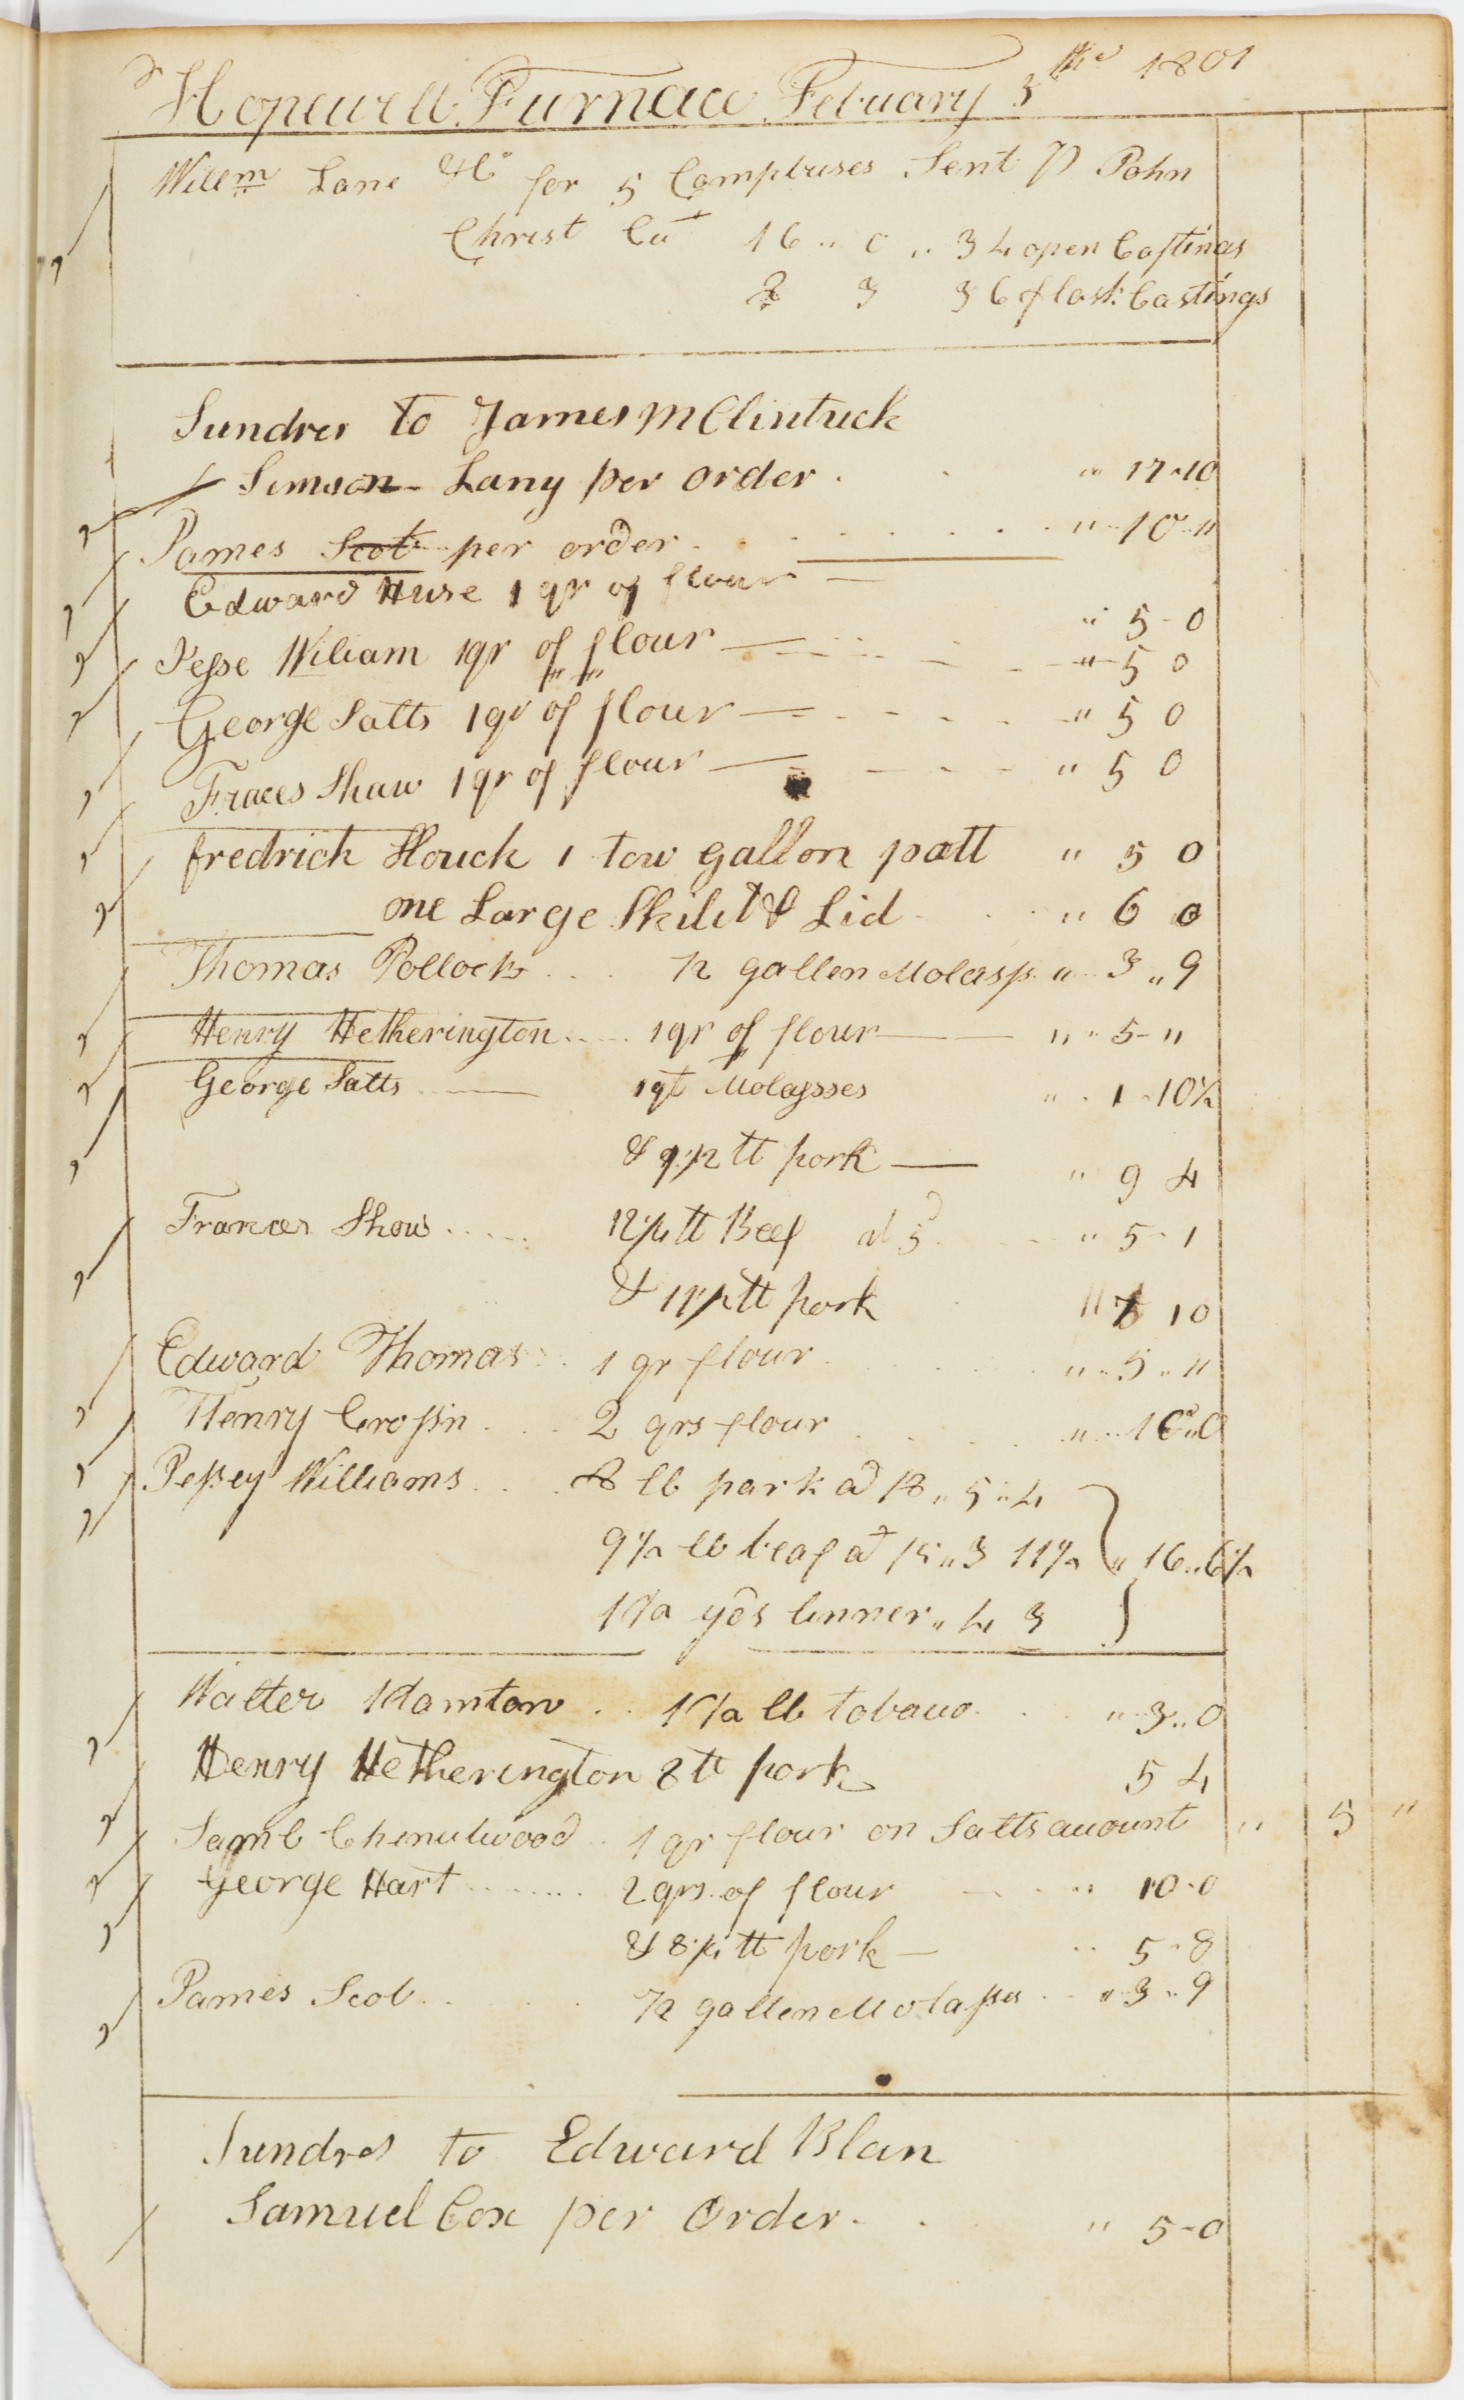 Hopewell Furnace Febuary 3 1801
Willm Lane & Co for 5 Compleses Sent P John
Christ 16 " 0 " 3 4 open Castings
2 3 3 6 flask Castings
Sundres to James MClintuck
Simson Lany per order . . " 17 " 10
James Scot per order . . . . " 10 "
Edward Huse 1 qr of flour — " 5 - 0
Jesse Wiliam 1qr of flour — " 5 0
George Satts 1 qr of flour — " 5 0
Fraces Shaw 1 qr of flour — " 5 0
fredrich Houck 1 tow gallon pott " 5 0
one Large Skilet & Lid . . " 6 0
Thomas Pollock . . . 1/2 gallen Molass " 3 " 9
Henry Hetherington . . . 1 qr of flour — " 5 - "
George Satts — 1 qt Molassses " 1 - 10 1/2
& 9 1/2 tt pork — " 9 4
Frances Show . . . . 12 1/4 tt Beef at 5d " 5 - 1
& 11 1/2 tt pork " 10
Edward Thomas . . 1 qr flour . . . " 5 " "
Henry Crossin . . . 2 qrs flour . . . " 10 " 0
Jessey Williams . . . 8 lb park ad /8 " 5 " 4
9 1/2 lb beaf at /5 " 3 11 1/2 } " 16 " 6 1/2
1 1/2 yds linner " 4 3
Walter Hamton . . 1 1/2 lb tobacco . . . " 3 " 0
Henry Hetherington 8 tt pork 5 4
Saml Chenulwood . 1 qr flour on Satts account " 5 "
George Hart . . . . . 2 qrs of flour — . . " 10 - 0
& 8 1/2 tt pork — " 5 " 8
James Scot . . . 1/2 gallen Molasses . . " 3 " 9
Sundres to Edward Blan
Samuel Cox per Order . . " 5 - 0